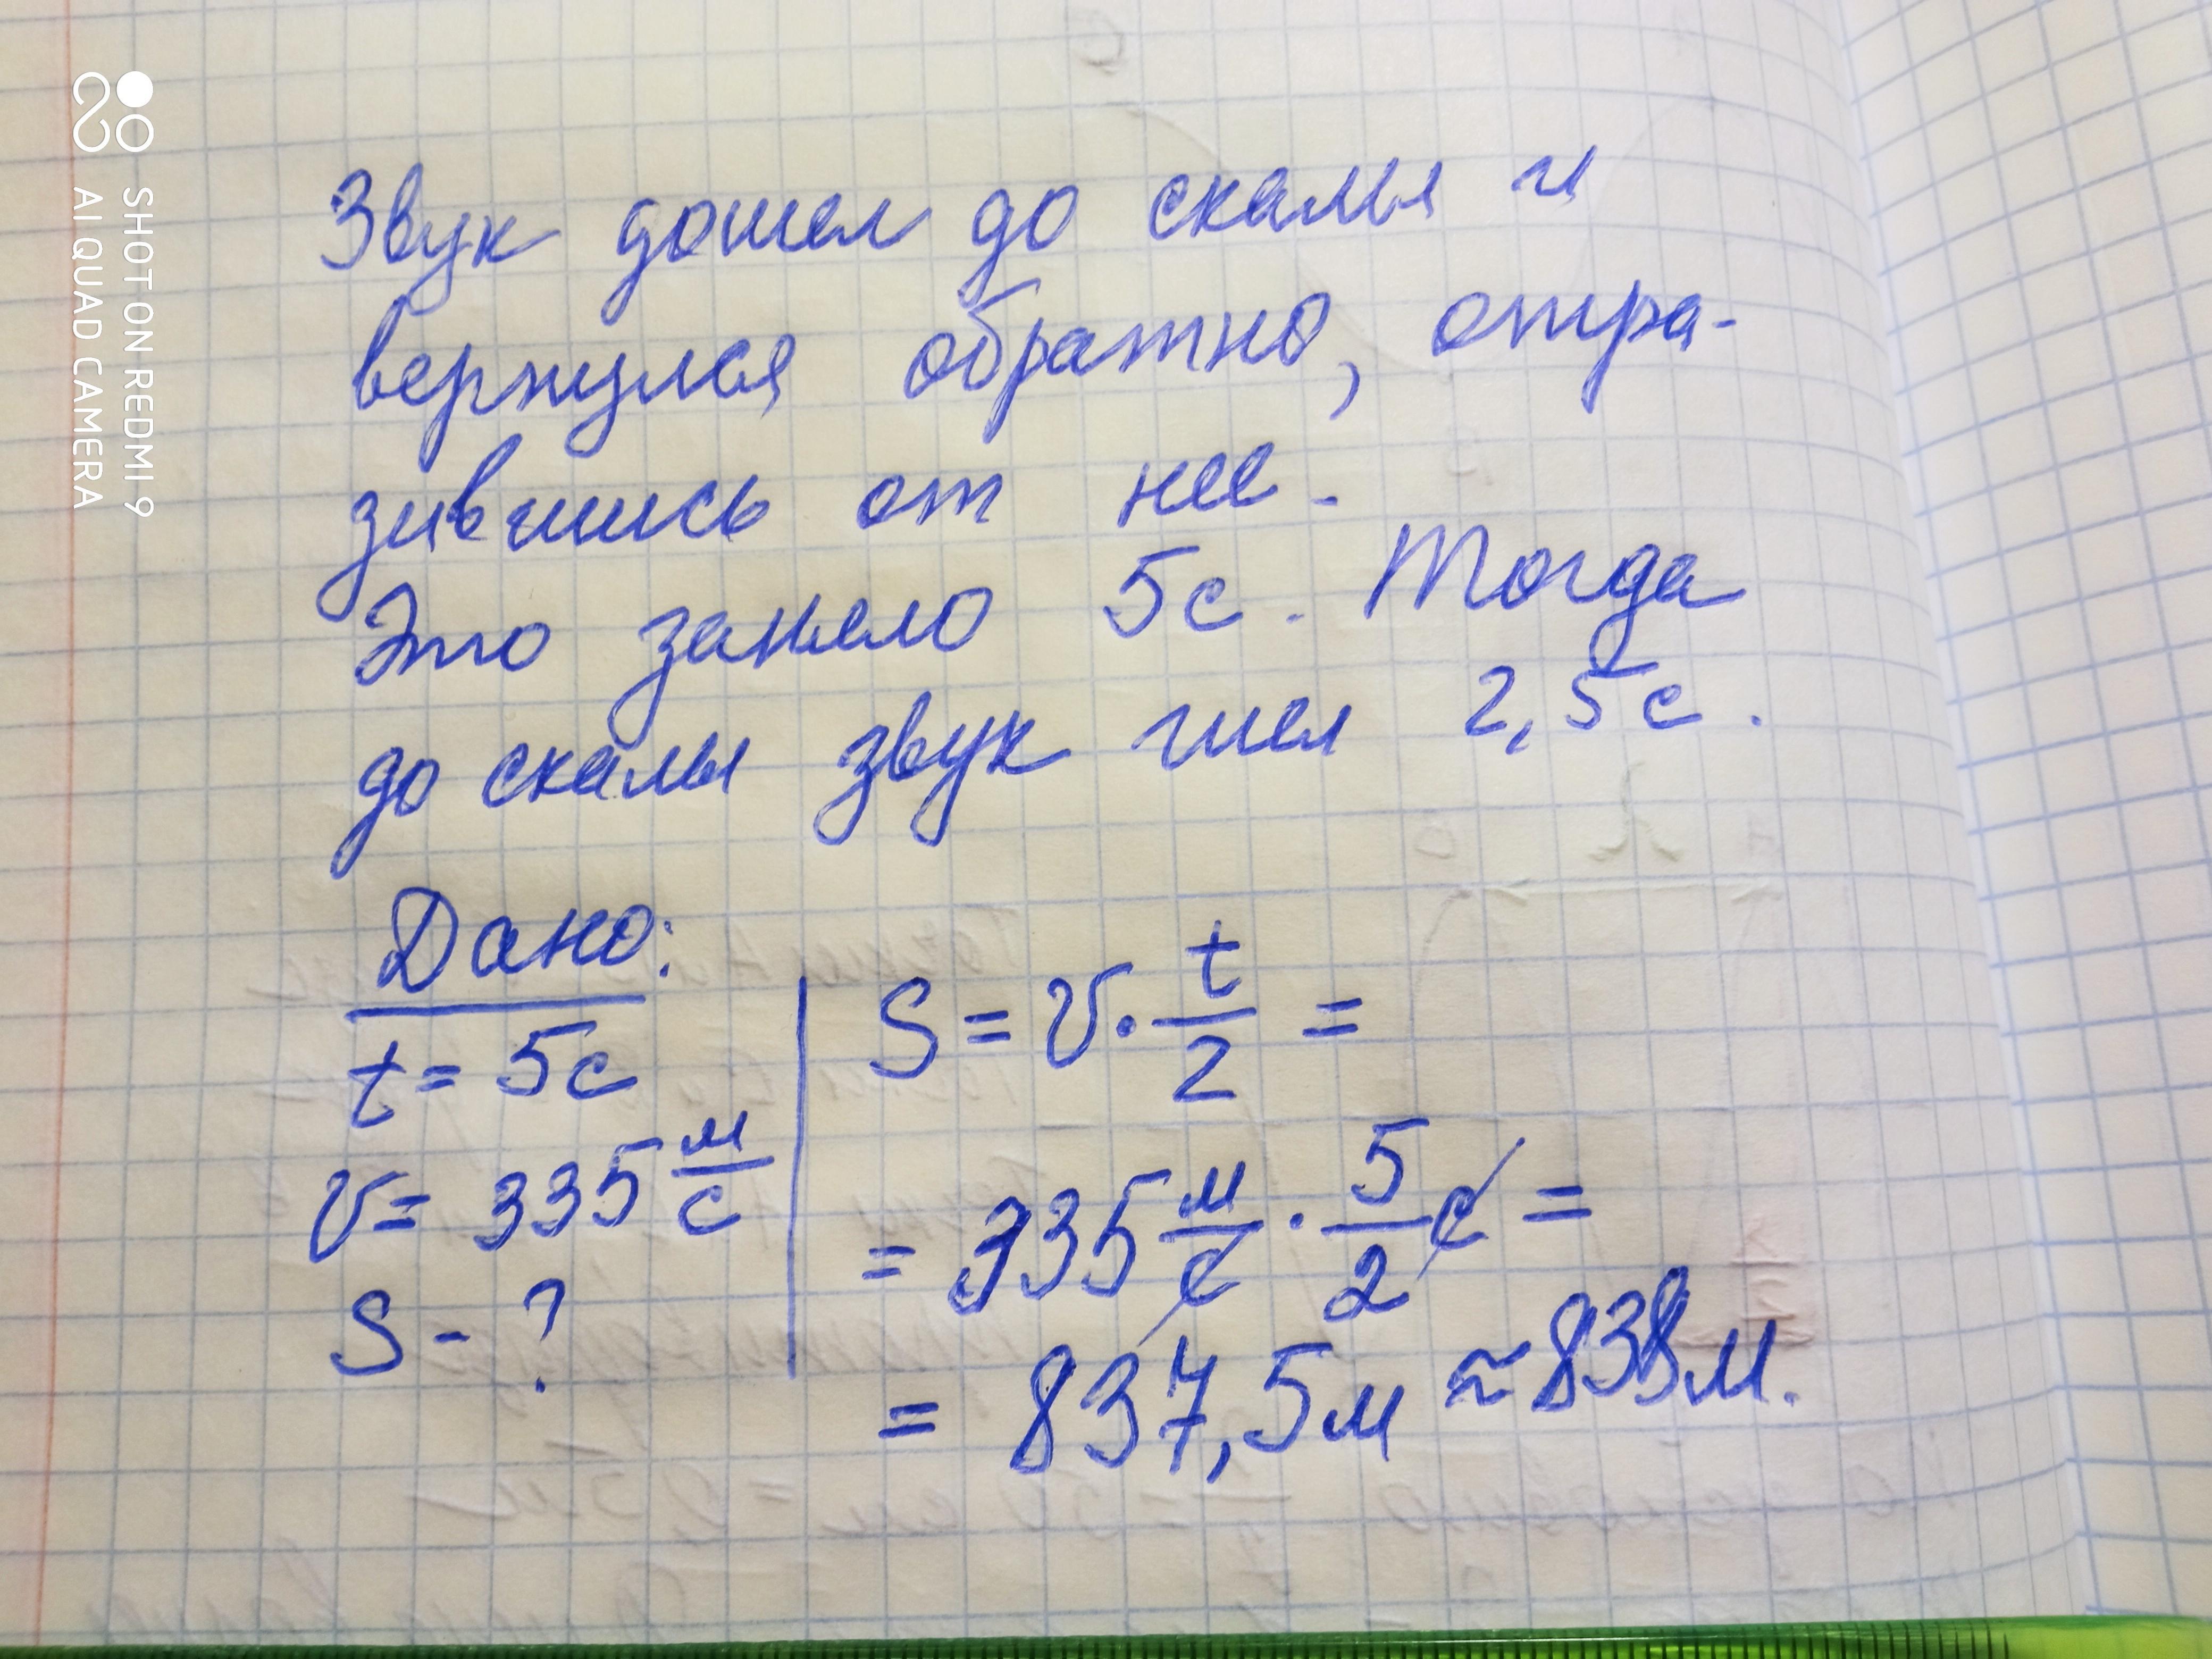 Звук дошел до скалы и
вернулся обратно, отра-
зившись от нее.
Это заняло 5с. Тогда
до скалы звук шел 2,5с.
Дано:
t = 5с
v = 335 м/с
S - ?
S = v · t/2 =
= 335 м/с · 5/2 с =
= 837,5м ≈ 838м.
SHOT ON REDMI 9
AI QUAD CAMERA